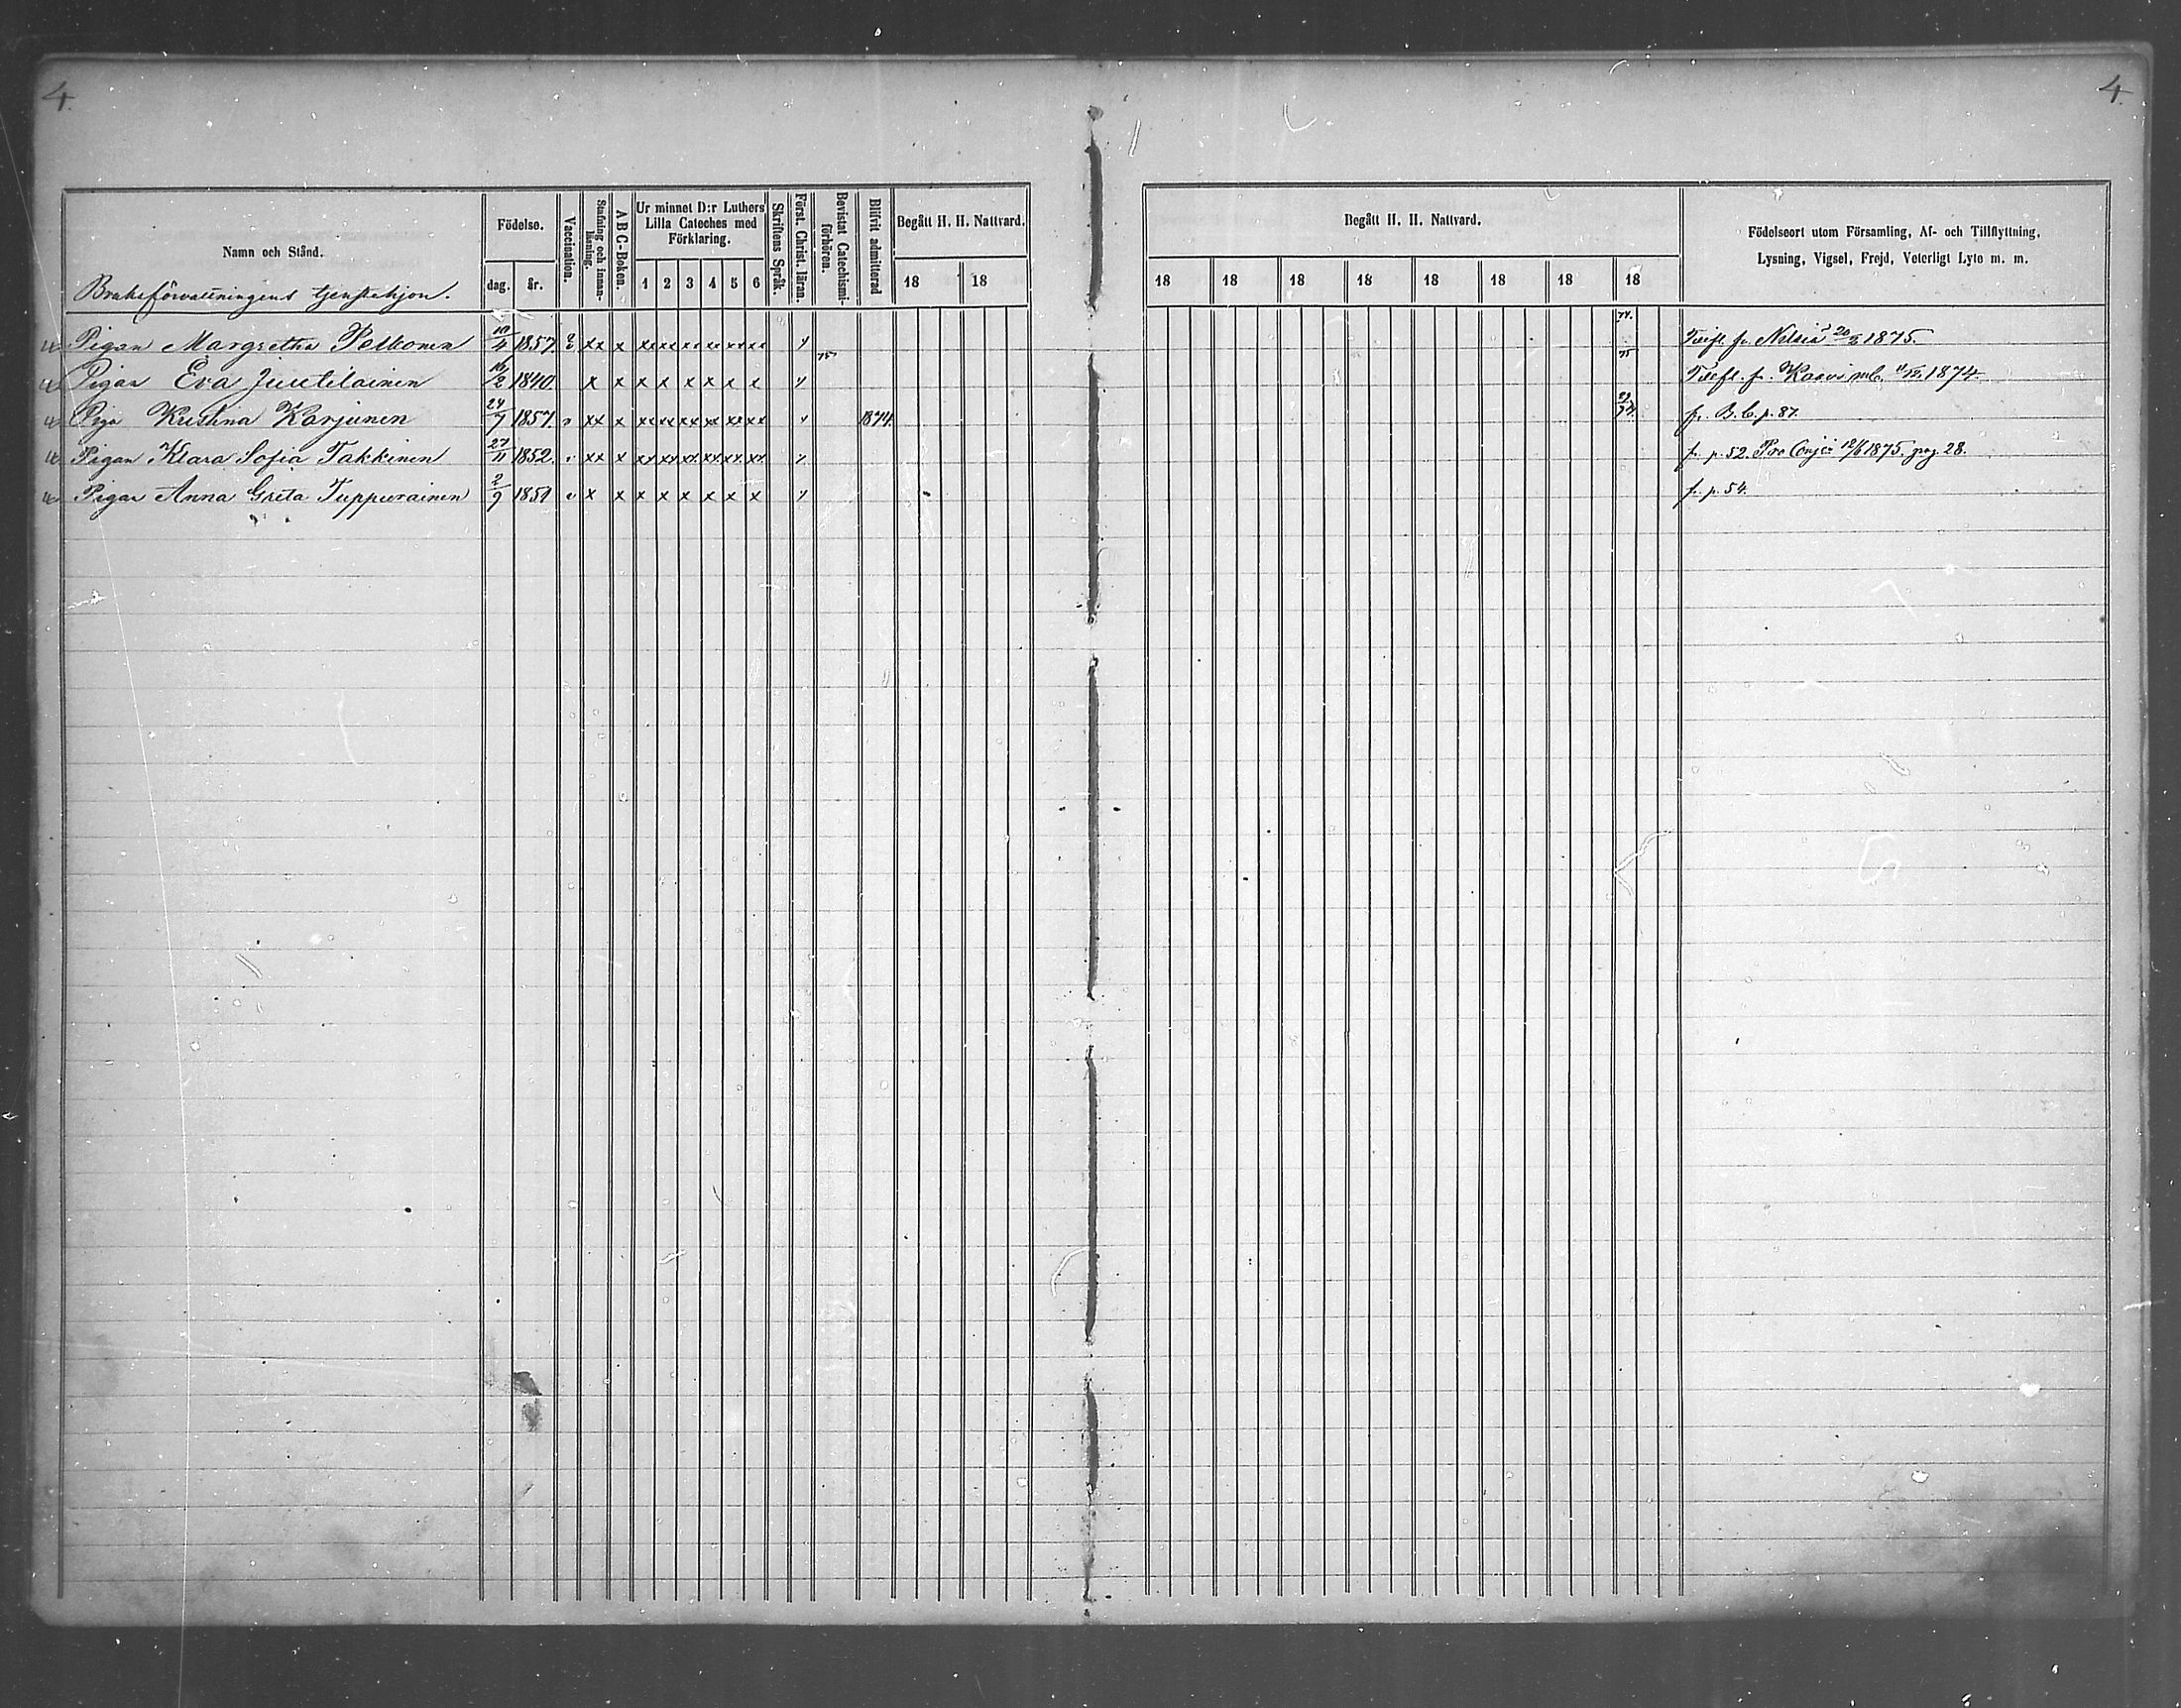 4.
4.
Namn och Stånd.
Födelse.
dag.
år.
Vaccination.
Stafning och innan-läsning.
ABC-Boken.
Ur minnet D:r Luthers
Lilla Cateches med
Förklaring.
1 2 3 4 5 6
Skriftens Språk.
Först. Christ. läran.
Bevistat Catechismi-förhören.
Blifvit admitterad
Begått H. H. Nattvard.
18 18
Begått H. H. Nattvard.
18 18 18 18 18 18 18 18
Födelseort utom Församling, Af- och Tillflyttning,
Lysning, Vigsel, Frejd, Veterligt Lyte m. m.
Bruksförvaltningens tjenstehjon.
Pigan Margretha Pelkonen 10/4 1857. xx x xx xx xx xx xx xx 74. Tillfl. fr. Nilsiä 1875.
Pigan Eva Juutilainen 16/2 1840. x x x x x x x x 75 75 Tillfl. fr. Kaavi 1874.
Piga Kristina Karjunen 24/7 1857. xx x xx xx xx xx xx xx 1874. fr. B.b. p. 87.
Pigan Klara Sofia Takkinen 27/11 1852. xx x xx xx xx xx xx xx fr. p. 52. 1875. pag. 28.
Pigan Anna Greta Tuppurainen 2/9 1851 x x x x x x x x fr. p. 54.